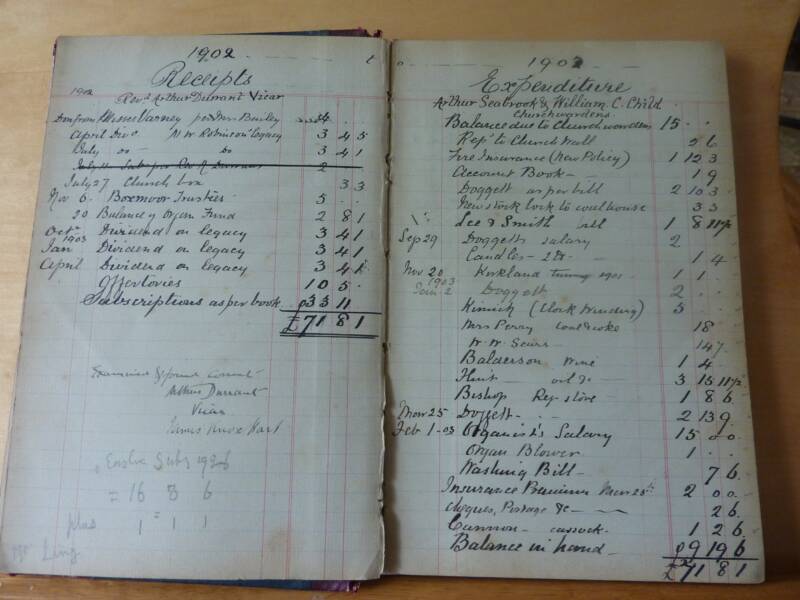 1902
Receipts
1902
Revd Arthur Durrant Vicar
per Mrs Bailey
April Divd N W Robinson legacy 3 4 5
July do do 3 4 1
July 27 Church box 3 3
Nov 6. Boxmoor Trustees 5 . .
20 Balance of Organ Fund 2 8 1
Octr Dividend on legacy 3 4 1
1903
Jan Dividend on legacy 3 4 1
April Dividend on legacy 3 4
Offertories 10 5 .
Subscriptions as per book 33 11
£71 8 1
Examined & found correct
Arthur Durrant
Vicar
Easter Subs 1926
16 8 6
plus 1 = 1 1
1902
Expenditure
Arthur Seabrook & William C. Child
Churchwardens
Balance due to Churchwardens 15 . .
Reps to Church Wall 2 6
Fire Insurance (New Policy) 1 12 3
Account Book 1 9
Doggett as per bill 2 10 3
New stock lock to coalhouse 3 3
Lee & Smith 1 8 11½
Sep 29 Doggetts salary 2 . .
Candles 1 4
Nov 20 Kirkland tuning 1901 1 1 .
1903
Jan 2 Doggett 2 . .
(Clock Winding) 3 . .
Mrs Perry coal & coke 18
W. W. Sears 14 7
Balderson Wine 1 4
oil &c 3 15 11½
Bishop Rep stove 1 8 6
Mar 25 Doggett 2 13 9
Feb 1-03 Organist's Salary 15
Organ Blower 1 . .
Washing Bill 7 6
Insurance Premium Mar 25th 2 0 0
Cheques, Postage &c 2 6
Cannon cassock 1 2 6
Balance in hand 9 19 6
£71 8 1